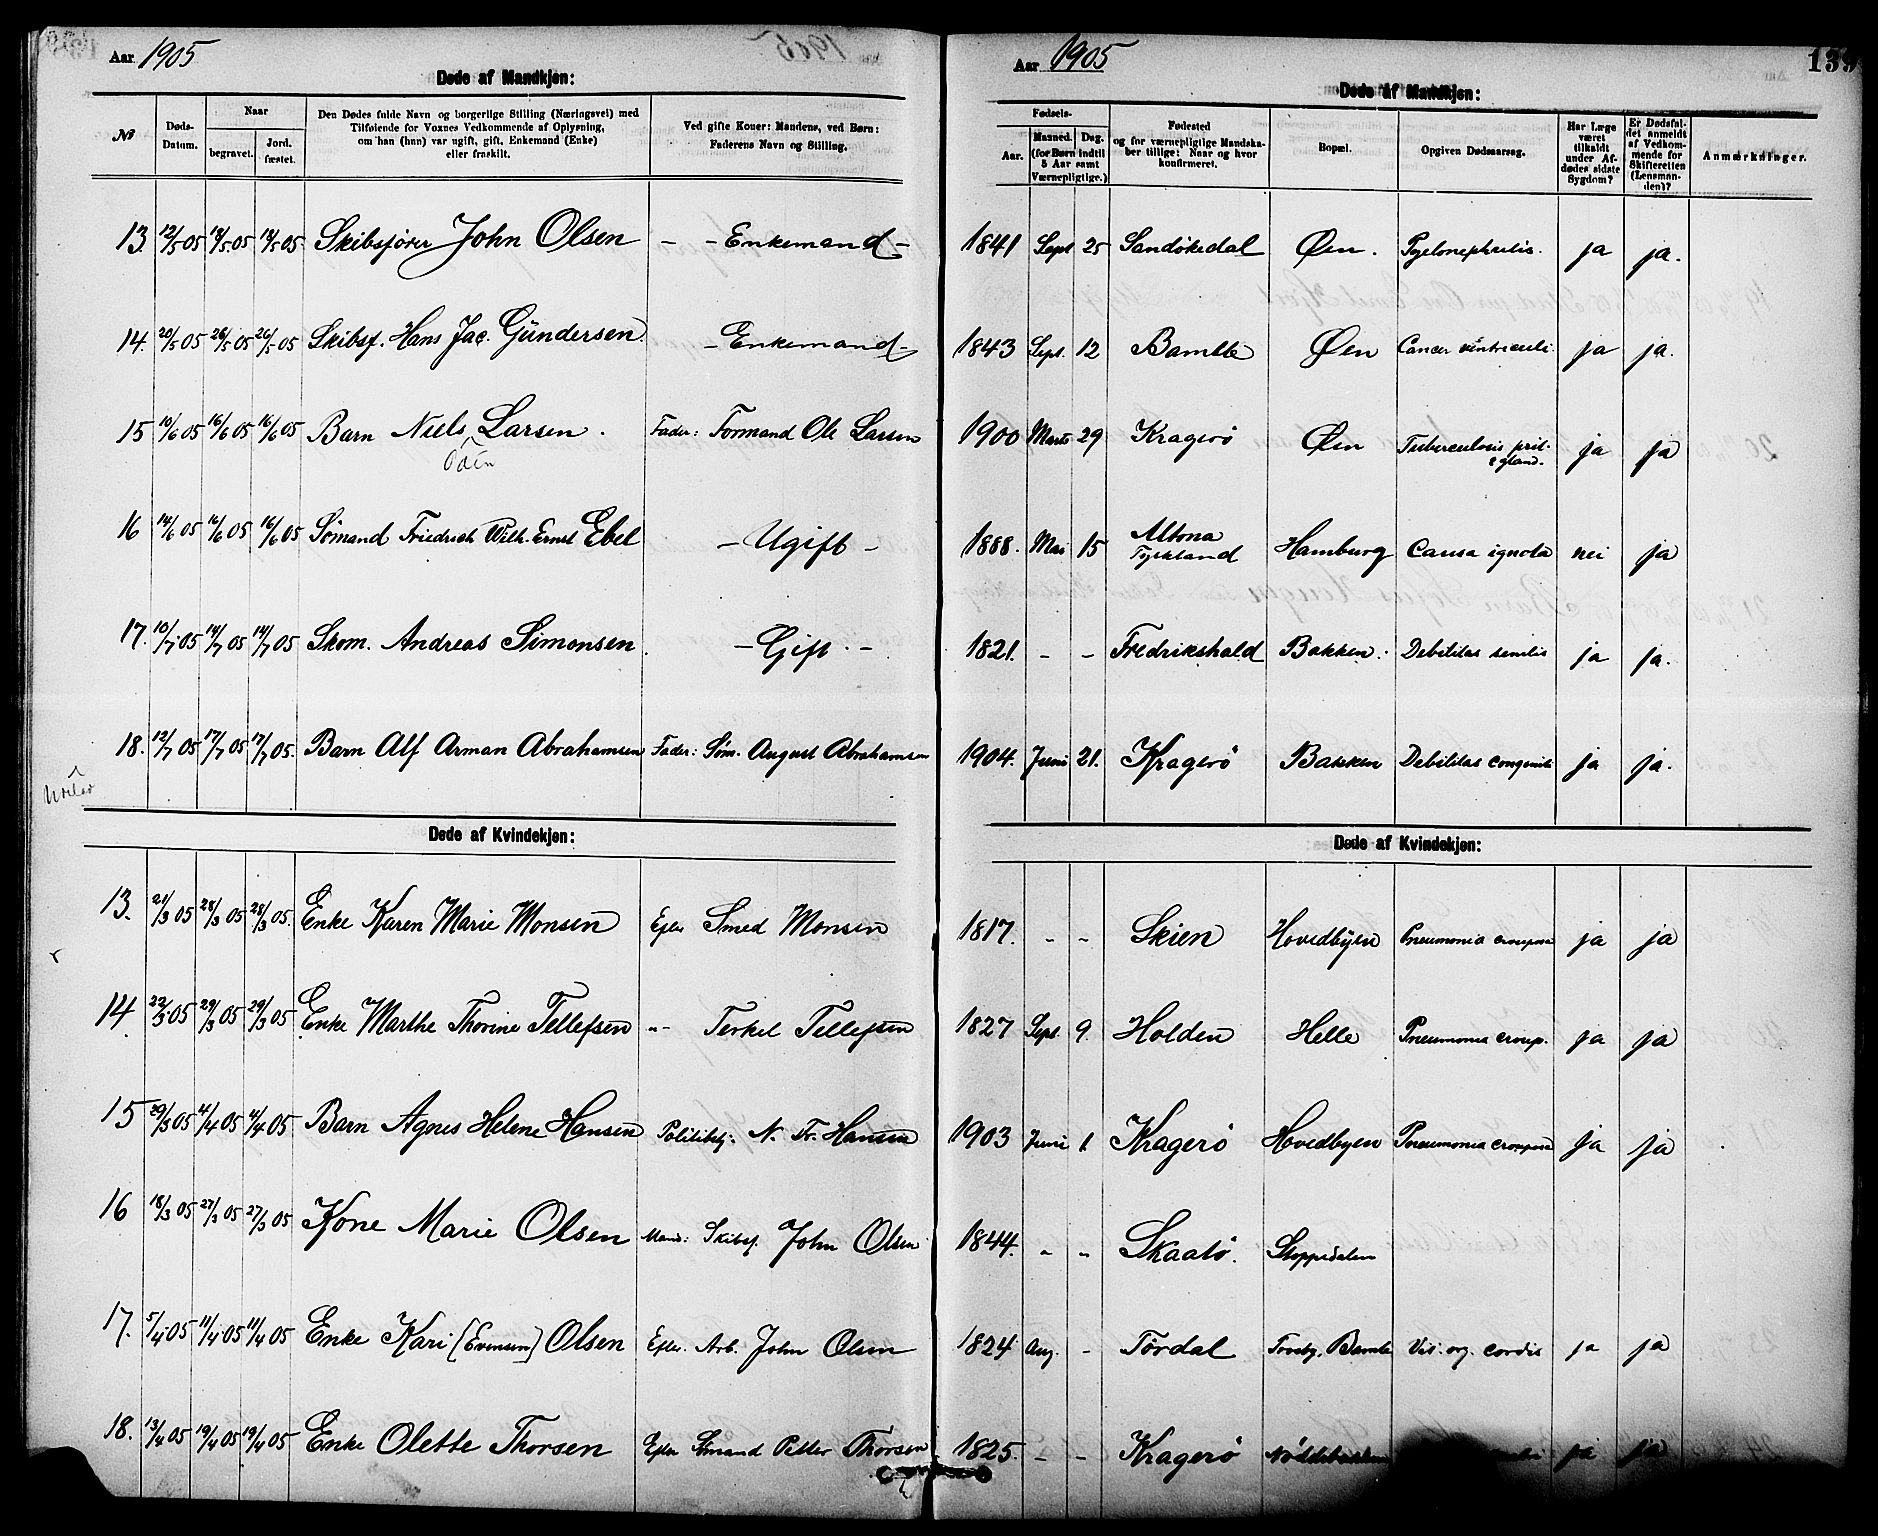 Aar 1905
Døde af Mandkjøn:
№
Døds-Datum.
Naar
begravet.
Jordfæstet.
Den Dødes fulde Navn og borgerlige Stilling (Næringsvei) med
Tilføiende for Voxnes Vedkommende af Oplysning,
om han (hun) var ugift, gift, Enkemand (Enke)
eller fraskilt.
Ved gifte Koner: Mandens, ved Børn:
Faderens Navn og Stilling.
13 12/5 05 18/5 05 18/5 05 Skibsfører John Olsen – – Enkemand –
14. 20/5 05 26/5 05 26/5 05 Skibsf. Hans Jac. Gundersen. – Enkemand –
15 10/6 05 16/6 05 16/6 05 Barn Niels Larsen. Fader: Formand Ole Larsen
Odin
16 14/6 05 16/6 05 16/6 05 Sømand Friedrich Wilh. Ernst Ebel – Ugift –
17. 10/7 05 14/7 05 14/7 05 Skom. Andreas Simonsen – Gift. –
18. 12/7 05 17/7 05 17/7 05. Barn Alf Arman Abrahamsen Fader: Søm. August Abrahamsen
Døde af Kvindekjøn:
13. 21/3 05 28/3 05 28/3 05. Enke Karen Marie Monsen Efter Smed Monsen
14. 22/3 05 29/3 05 29/3 05 Enke Marthe Thorine Tellefsen -"- Terkel Tellefsen
15 30/3 05 4/4 05 4/4 05 Barn Agnes Helene Hansen Politibtj: N. Fr. Hansen
16 18/3 05 27/3 05 27/3 05 Kone Marie Olsen Mand: Skibsf. John Olsen
17. 5/4 05 11/4 05 11/4 05 Enke Kari [Evensen] Olsen Efter. Arb. John Olsen
18. 13/4 05 19/4 05 19/4 05 Enke Olette Thorsen Efter Sømand Petter Thorsen
Aar 1905
139
Døde af Mandkjøn:
Fødsels-
Aar.
Maaned. Dag.
(for Børn indtil
5 Aar samt
Værnepligtige.)
Fødested
og for værnepligtige Mandskaber tillige: Naar og hvor
konfirmeret.
Bopæl.
Opgiven Dødsaarsag.
Har Læge
været
tilkaldt
under Afdødes sidste
Sygdom?
Er Dødsfaldet anmeldt
af Vedkommende for
Skifteretten
(Lensmanden)?
Anmærkninger.
1841 Sept 25 Sandøkedal Øen. Pyelonephritis. ja ja.
1843 Sept. 12 Bamble Øen Cancer ventriculi ja ja.
1900 Marts 29 Kragerø Øen Tuberculosis ja ja
& gland.
1888. Mai 15 Altona
Tyskland Hamburg Causa ignota nei ja
1821. – – Fredrikshald Bakken. Debilitas senilis ja ja.
1904. Juni 21. Kragerø Bakken Debilitas congenita ja ja.
Døde af Kvindekjøn:
1817. " " Skien Hovedbyen Pneumonia crouposa ja ja
1827 Sept. 9. Holden Helle Pneumonia croup. ja ja
1903 Juni 1. Kragerø Hovedbyen Pneumonia crouposa ja ja
1844. " " Skaatø. Stoppedalen
1824 Aug. – Tørdal Trosby, Bamble Vit. org. cordis ja ja
1825. – – Kragerø ja ja